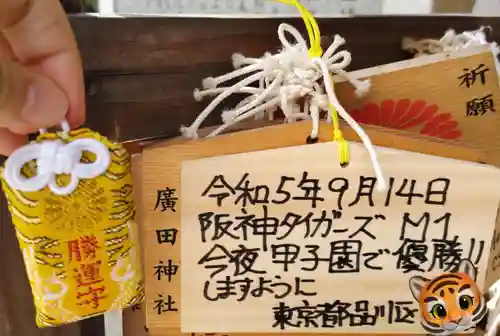 祈願
廣田神社
勝運守
令和5年9月14日
阪神タイガーズ M1
今夜 甲子園で優勝!!
しますように
東京都品川区